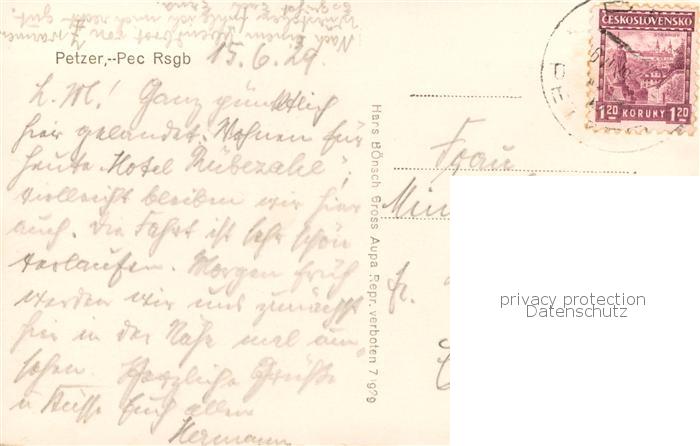 Petzer,--Pec Rsgb
15.6.29
L. M! Ganz pünktlich
hier gelandet. Wohnen für
heute Hotel Rübezahl!,
vielleicht bleiben wir hier
auch. Die Fahrt ist sehr schön
verlaufen. Morgen früh
werden wir uns zunächst
hier in der Nähe mal um-
sehen. Herzliche Grüße
u Küsse Euch allen
Hermann
Hans BÖnsch Gross Aupa Repr. verboten 7 1929
ČESKOSLOVENSKO
1.20 KORUNY 1.20
Frau
privacy protection
Datenschutz